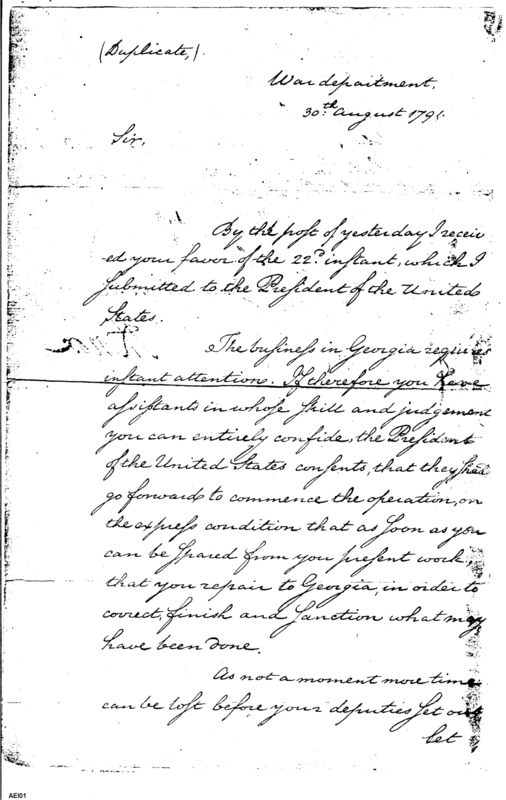 (Duplicate,)
War department.
30th. August 1791.
Sir,
By the post of yesterday I receiv
ed your favor of the 22d. instant, which I
submitted to the President of the United
States.
The business in Georgia requires
instant attention. If therefore you have
assistants in whose skill and judgement
you can entirely confide, the President
of the United States consents, that they shall
go forward to commence the operation, on
the express condition that as soon as you
can be spared from you present work,
that you repair to Georgia, in order to
correct, finish and sanction what may
have been done.
As not a moment more time
can be lost before your deputies set out
let
AEI01